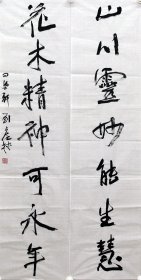 山川靈妙能生慧
花木精神可永年